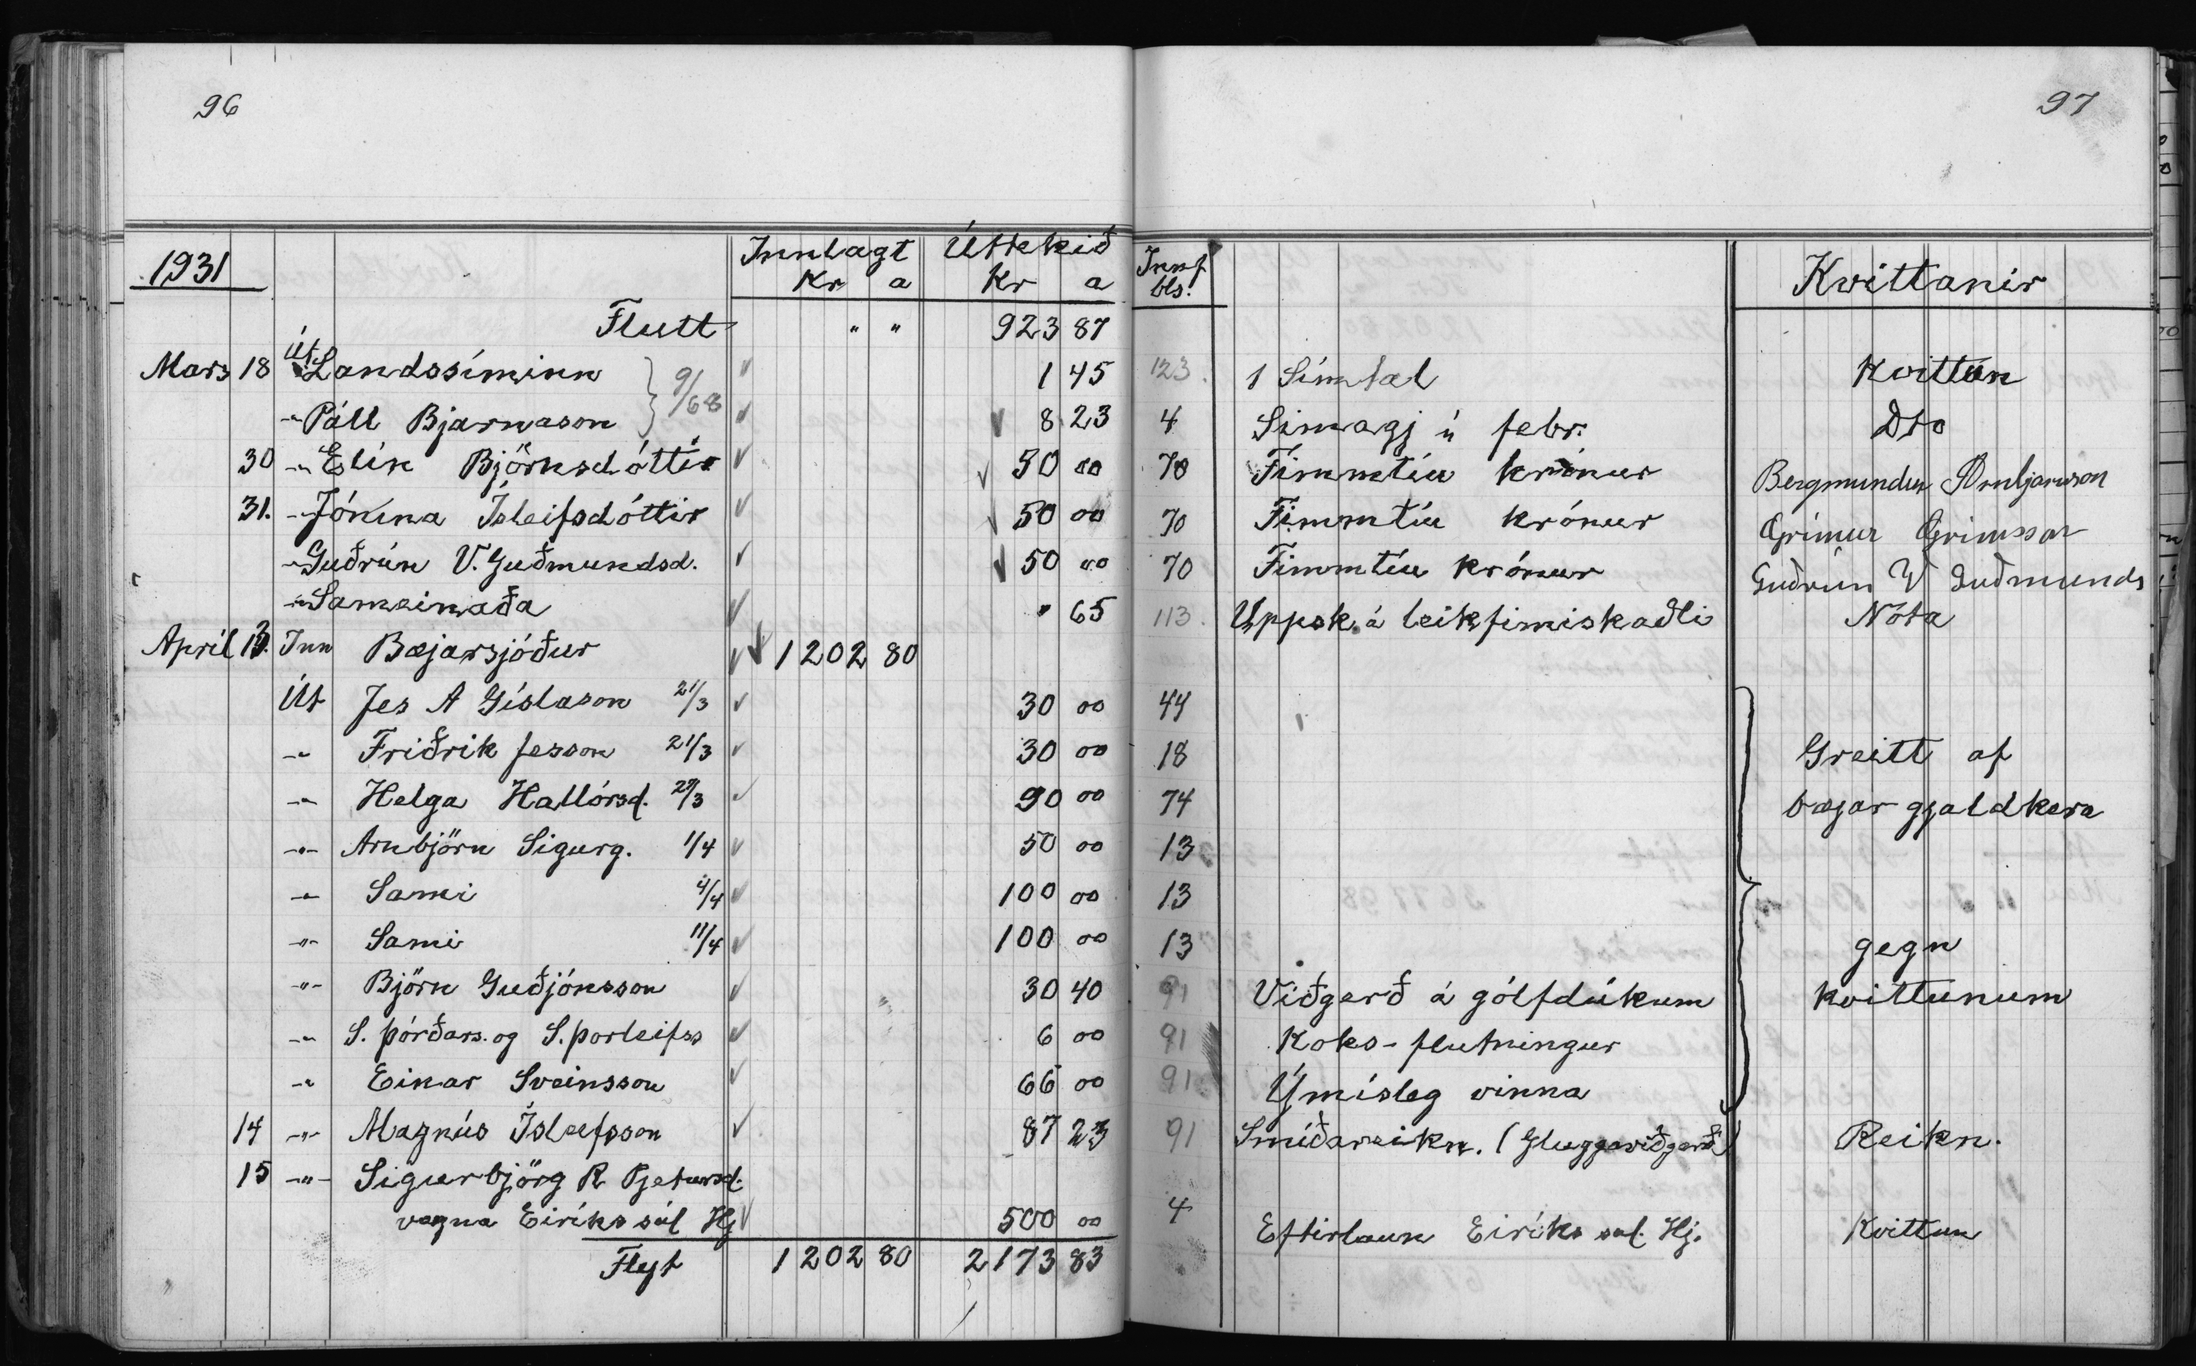 96
97
1931 Innlagt Úttekið Innf Kvittanir
Kr a Kr a bls.
Flutt " " 923 87
Mars 18 Út Landssíminn 9/68 1 45 123. 1 Símtal Kvittun
-"- Páll Bjarnason 8 23 4 Simagj í febr. Dto
30 -"- Elín Björnsdóttir 50 00 70 Fimmtíu krónur Bergmundur Arnbjarnson
31. -"- Jónína Ísleifsdóttir 50 00 70 Fimmtíu krónur Grímur Grimsson
-"- Guðrún V. Guðmundsd. 50 00 70 Fimmtíu krónur Guðrún V Guðmunds
-"- Sameinaða " 65 113. Uppsk. á leikfimiskaðli Nóta
Apríl 13. Inn Bæjarsjóður 1202 80
Út Jes A Gíslason 21/3 30 00 44
-"- Friðrik Jesson 21/3 30 00 18 Greitt af
-"- Helga Hallórsd. 29/3 90 00 74 bæjar gjaldkera
-"- Arnbjörn Sigurg. 1/4 50 00 13
-"- Sami 4/4 100 00 13
-"- Sami 11/4 100 00 13 gegn
-"- Björn Guðjónsson 30 40 91 Viðgerð á gólfdúkum kvittunum
-"- S. Þórðars. og S. Þorleifss 6 00 91 Koks-flutningur
-"- Einar Sveinsson 66 00 91 Ýmisleg vinna
14 -"- Magnús Ísleifsson 87 23 91 Smíðareikn. (Gluggaviðgerð) Reikn.
15 -"- Sigurbjörg R Pjetursd.
vegna Eiríks sál Hj 500 00 4 Eftirlaun Eiríks sal. Hj. Kvittun
Flyt 1202 80 2173 83